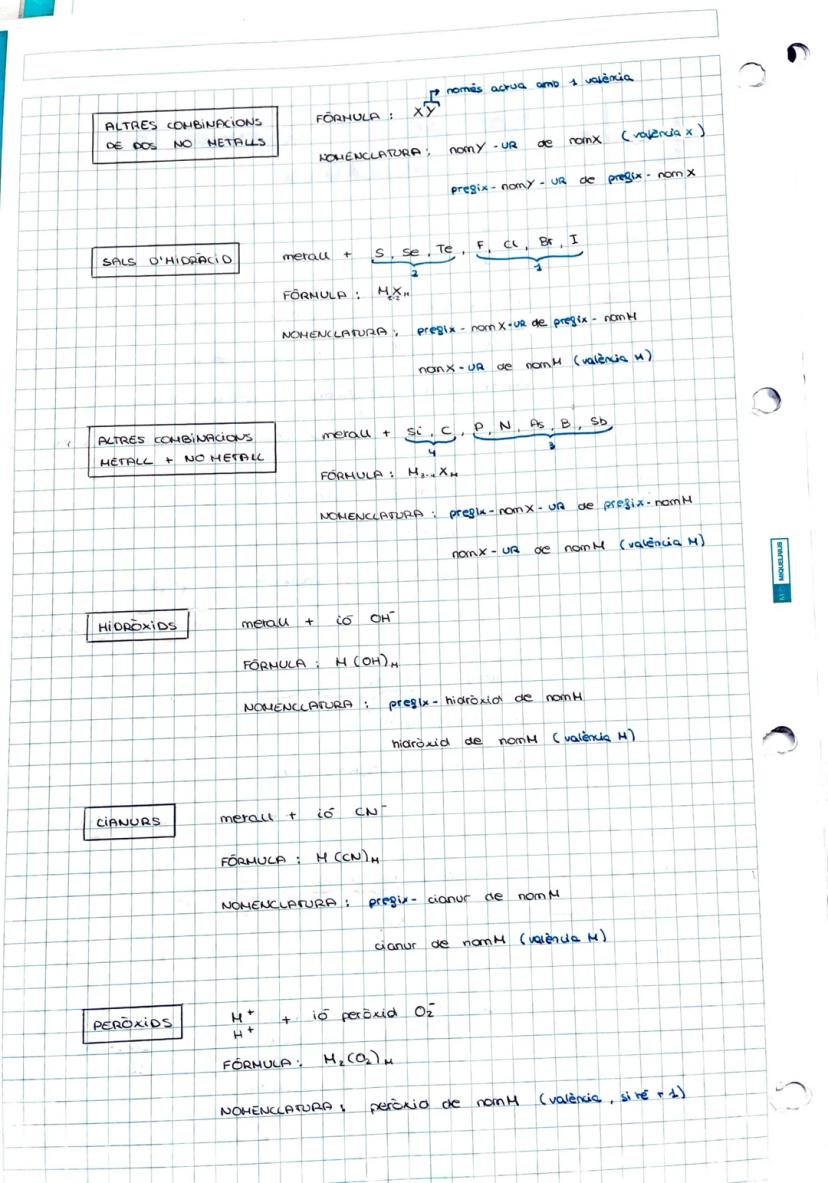 només actua amb 1 valència
ALTRES COMBINACIONS
DE DOS NO METALLS
FÓRMULA : XY
NOMENCLATURA : nomY - UR de nomX (valència X)
pregix - nomY - UR de pregix - nom X
SALS D'HIDRÀCID
metall + S, Se, Te, F, Cl, Br, I
2 1
FÓRMULA : M₁₋₂XM
NOMENCLATURA : pregix - nom X - UR de pregix - nomM
nomX - UR de nomM (valència M)
ALTRES COMBINACIONS
METALL + NO METALL
metall + Si, C, P, N, As, B, Sb
4 3
FÓRMULA : M₃₋₄ XM
NOMENCLATURA : pregix - nomX - UR de pregix - nomM
nomX - UR de nomM (valència M)
HIDRÒXIDS
metall + ió OH⁻
FÓRMULA : M(OH)M
NOMENCLATURA : pregix - hidròxid de nomM
hidròxid de nomM (valència M)
CIANURS
metall + ió CN⁻
FÓRMULA : M(CN)M
NOMENCLATURA : pregix - cianur de nomM
cianur de nomM (valència M)
PERÒXIDS
M⁺
H⁺ + ió peròxid O₂⁻
FÓRMULA : M₂(O₂)M
NOMENCLATURA : peròxid de nomM (valència, si té + 1)
MIQUELRIUS